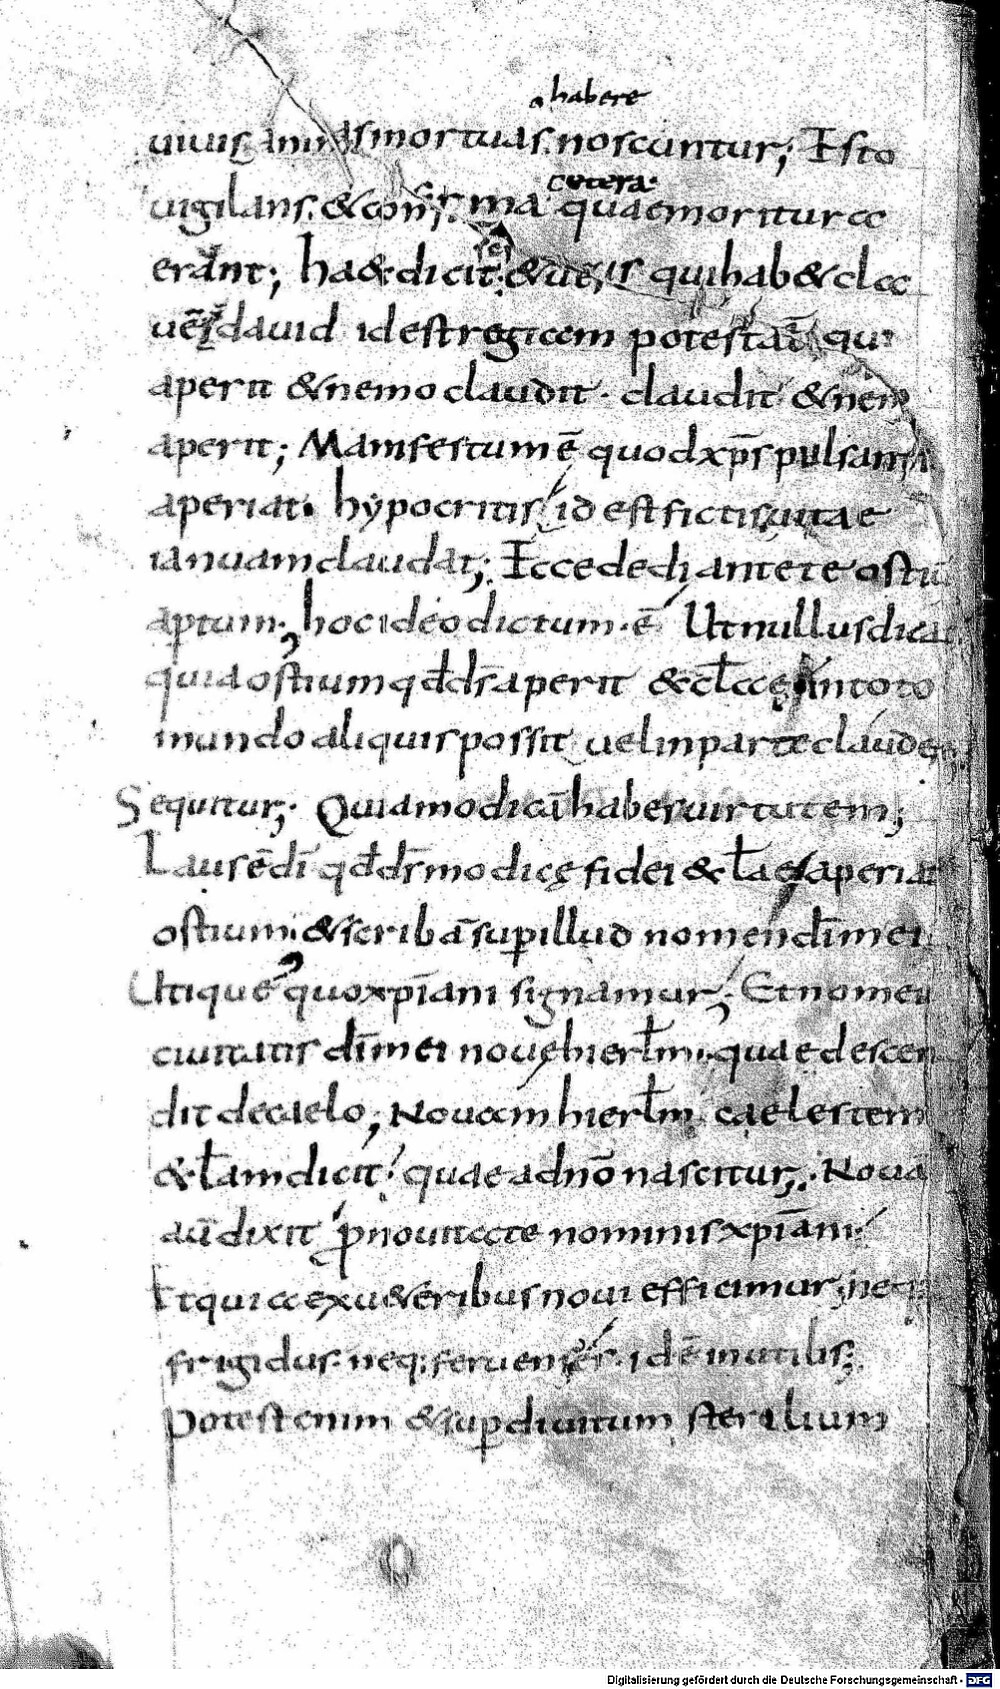 habere
uiuis animas mortuas noscuntur; Esto
cetera
uigilans. & confirma quae moritura
erant; ha& dicit & uerus qui hab& cla
uē dauid id est regiam potestatē qui
aperit & nemo claudit. claudit & nemo
aperit; Manifestum ē quod xp̄s pulsanti
aperiat. hypocritis id est fictis uitae
ianuam claudat; Ecce dedi ante te ostiū
aptum. hoc ideo dictum. ē Ut nullus dicat
quia ostium qđ dr̄ aperit & ecclae in toto
mundo aliquis possit uel in parte claudere
Sequitur; Quia modicā habes uirtutem;
Laus ē dī qđ dr̄ modice fidei & eclae aperiat
ostium; & scribā sup illud nomen dī mei
Utique quo xp̄iani signamur; Et nomen
ciuitatis dī mei noue hierłm. quae descen
dit de caelo; Nouam hierłm caelestem
& ełam dicit quae a dn̄o nascitur; Nouā
aū dixit p nouitate nominis xp̄iani
Et qui a ex u&eribus noui efficimur; neq;
frigidus. neq; feruens es. id ē inutilis;
Potest enim & sup diuitum sterilium
Digitalisierung gefördert durch die Deutsche Forschungsgemeinschaft - DFG